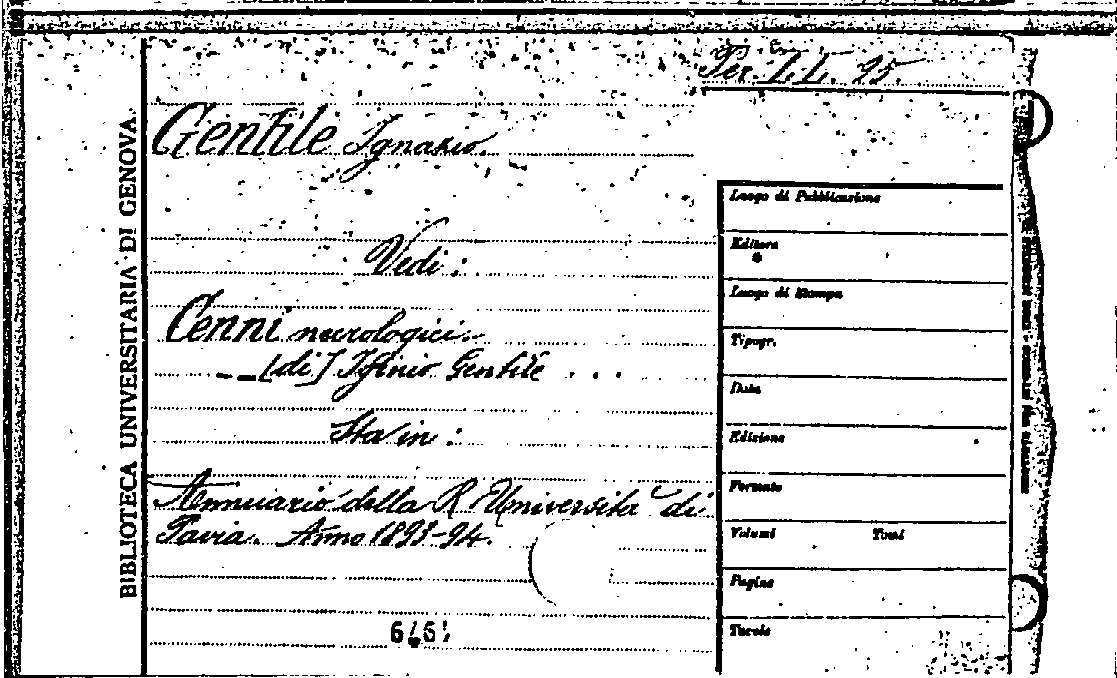 Per. I.I. 95.
Gentile Ignazio.
Vedi:
Cenni necrologici.
__[di] Iginio Gentile ...
Sta in:
Annuario della R. Università di
Pavia. Anno 1893-94.
BIBLIOTECA UNIVERSITARIA DI GENOVA.
Luogo di Pubblicazione
Editore
Luogo di Stampa
Tipogr.
Data
Edizione
Formato
Volumi Tomi
Pagine
Tavole